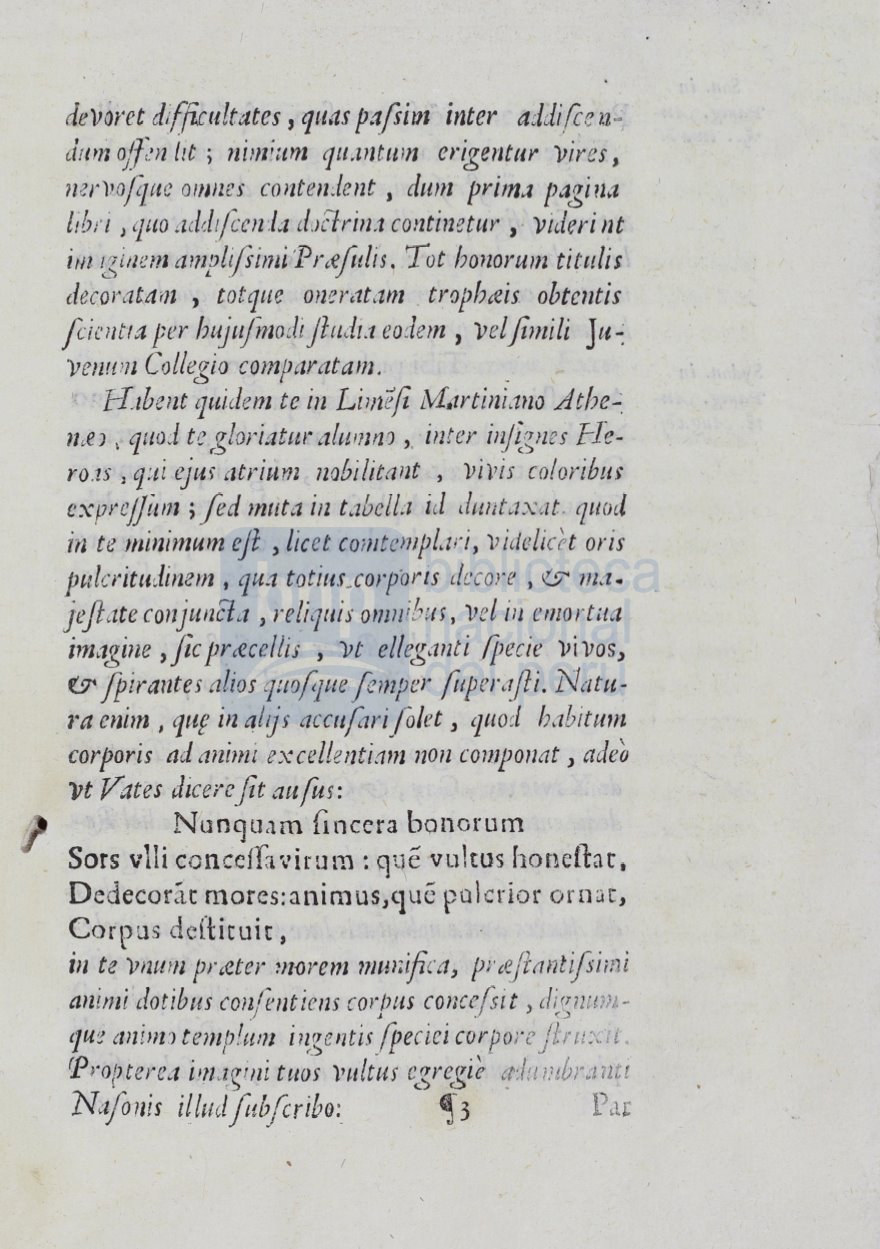 devoret difficultates, quas paſsim inter addiſcen-
dum offendit; nimium quantum erigentur vires,
nervoſque omnes contendent, dum prima pagina
libri, quo addiſcenda doctrina continetur, viderint
imaginem ampliſsimi Præſulis. Tot honorum titulis
decoratam, totque oneratam trophæis obtentis
ſcientia per hujuſmodi ſtudia eodem, vel ſimili Ju-
venum Collegio comparatam.
Habent quidem te in Limēſi Martiniano Athe-
næo, quod te gloriatur alumno, inter inſignes He-
roas, qui ejus atrium nobilitant, vivis coloribus
expreſſum; ſed muta in tabella id duntaxat quod
in te minimum eſt, licet comtemplari, videlicèt oris
pulcritudinem, qua totius corporis decore, & ma-
jeſtate conjuncta, reliquis omnibus, vel in emortua
imagine, ſic præcellis, vt elleganti ſpecie vivos,
& ſpirantes alios quoſque ſemper ſuperaſti. Natu-
ra enim, quę in alijs accuſari ſolet, quod habitum
corporis ad animi excellentiam non componat, adeò
vt Vates dicere ſit auſus:
Nunquam ſincera bonorum
Sors vlli conceſſa virum: quē vultus honeſtat,
Dedecorāt mores: animus, quē pulcrior ornat,
Corpus deſtituit,
in te vnum præter morem munifica, præſtantiſsimi
animi dotibus conſentiens corpus conceſsit, dignum-
que animo templum ingentis ſpeciei corpore ſtruxit.
Propterea imagini tuos vultus egregiè adumbranti
Naſonis illud ſubſcribo: ¶3 Par
biblioteca
nacional
del perú